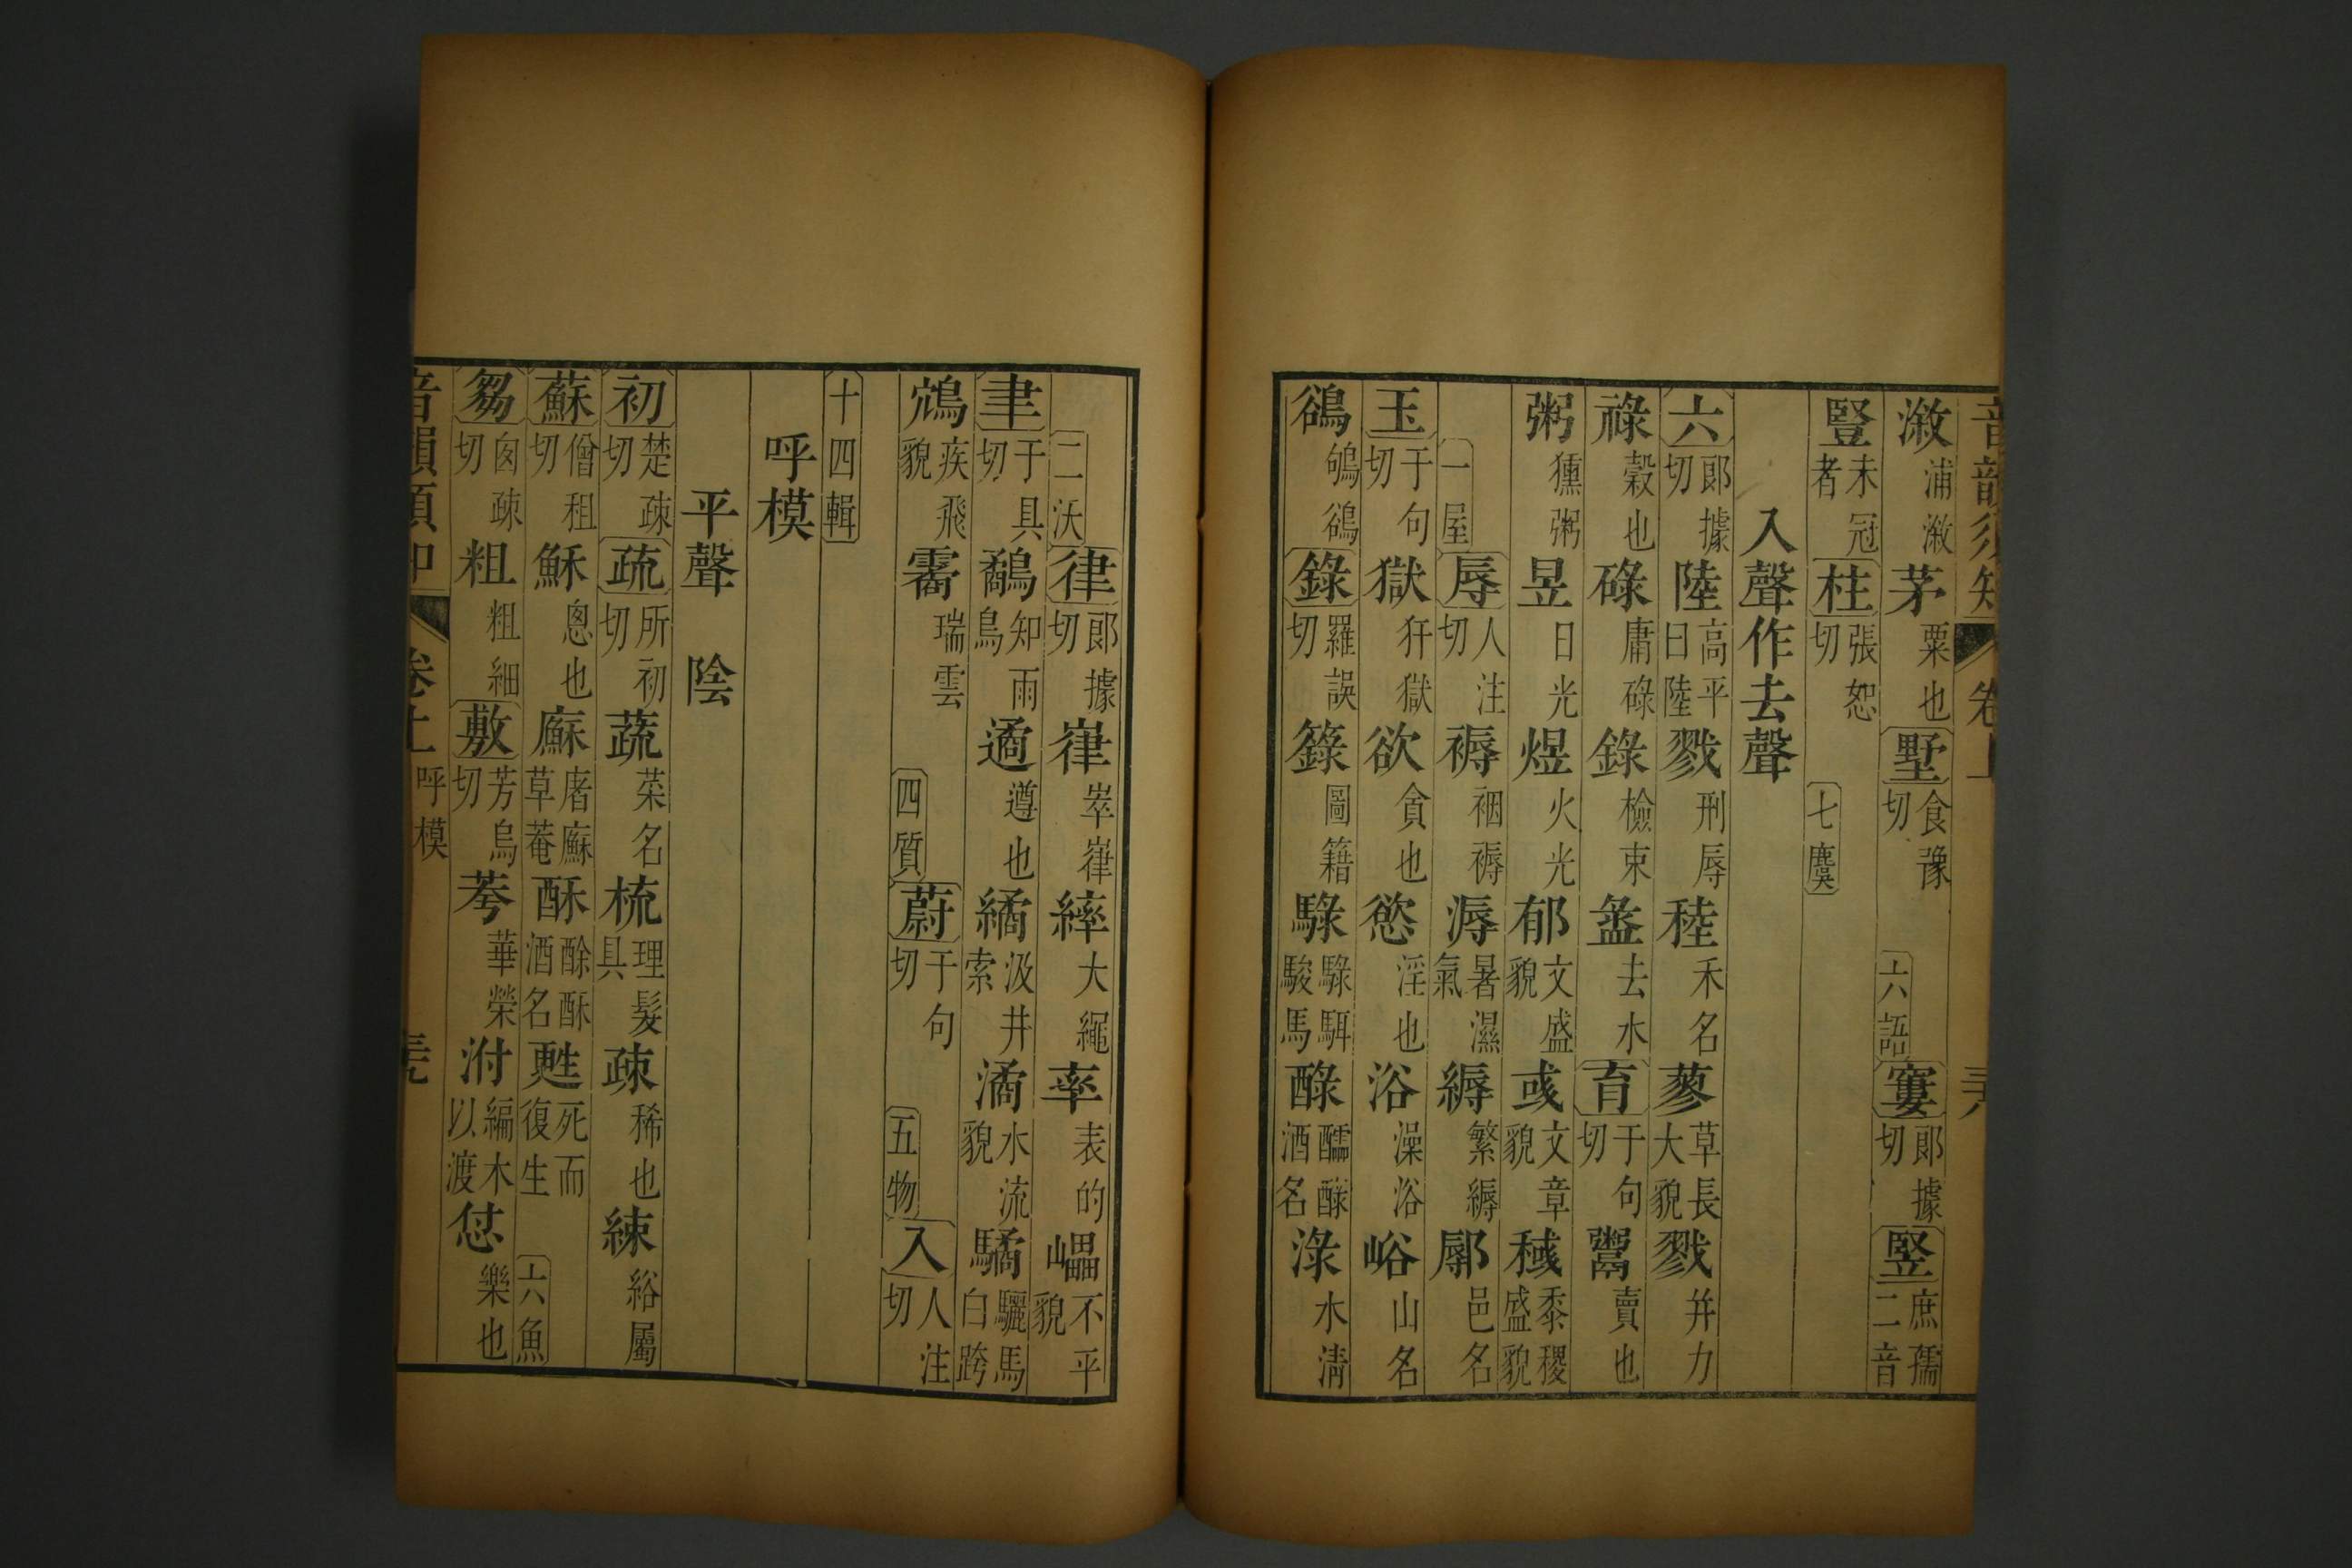 音韻須知 卷上
漵浦漵茅粟也墅食豫切六語窶郎據切竪庶孺二音
豎未冠者柱張恕切七麌
入聲作去聲
六郎據切陸高平曰陸戮刑辱稑禾名蓼草長大貌戮并力
祿穀也碌庸碌錄檢束盝去水育于句切鬻賣也
粥獯粥昱日光煜火光郁文盛貌彧文章貌稶黍稷盛貌
一屋辱人注切褥裀褥溽暑濕氣縟繁縟鄏邑名
玉于句切獄犴獄欲貪也慾淫也浴澡浴峪山名
鵒鴝鵒錄羅誤切籙圖籍騄騄駬駿馬醁醽醁酒名淥水清
二沃律郎據切嵂崒嵂繂大繩率表的𡾊不平貌
聿于具切鷸知雨鳥遹遵也繘汲井索潏水流貌驈驪馬白跨
鴥疾飛貌霱瑞雲四質蔚于句切五物入人注切
十四輯
呼模
平聲 陰
初楚疎切疏所初切蔬菜名梳理髮具疎稀也綀綌屬
蘇僧租切穌息也廜廜㢝草菴酥酴酥酒名甦死而復生六魚
芻囪疎切粗粗細敷芳烏切荂華榮泭編木以渡怤樂也
音韻須知 卷上 呼模